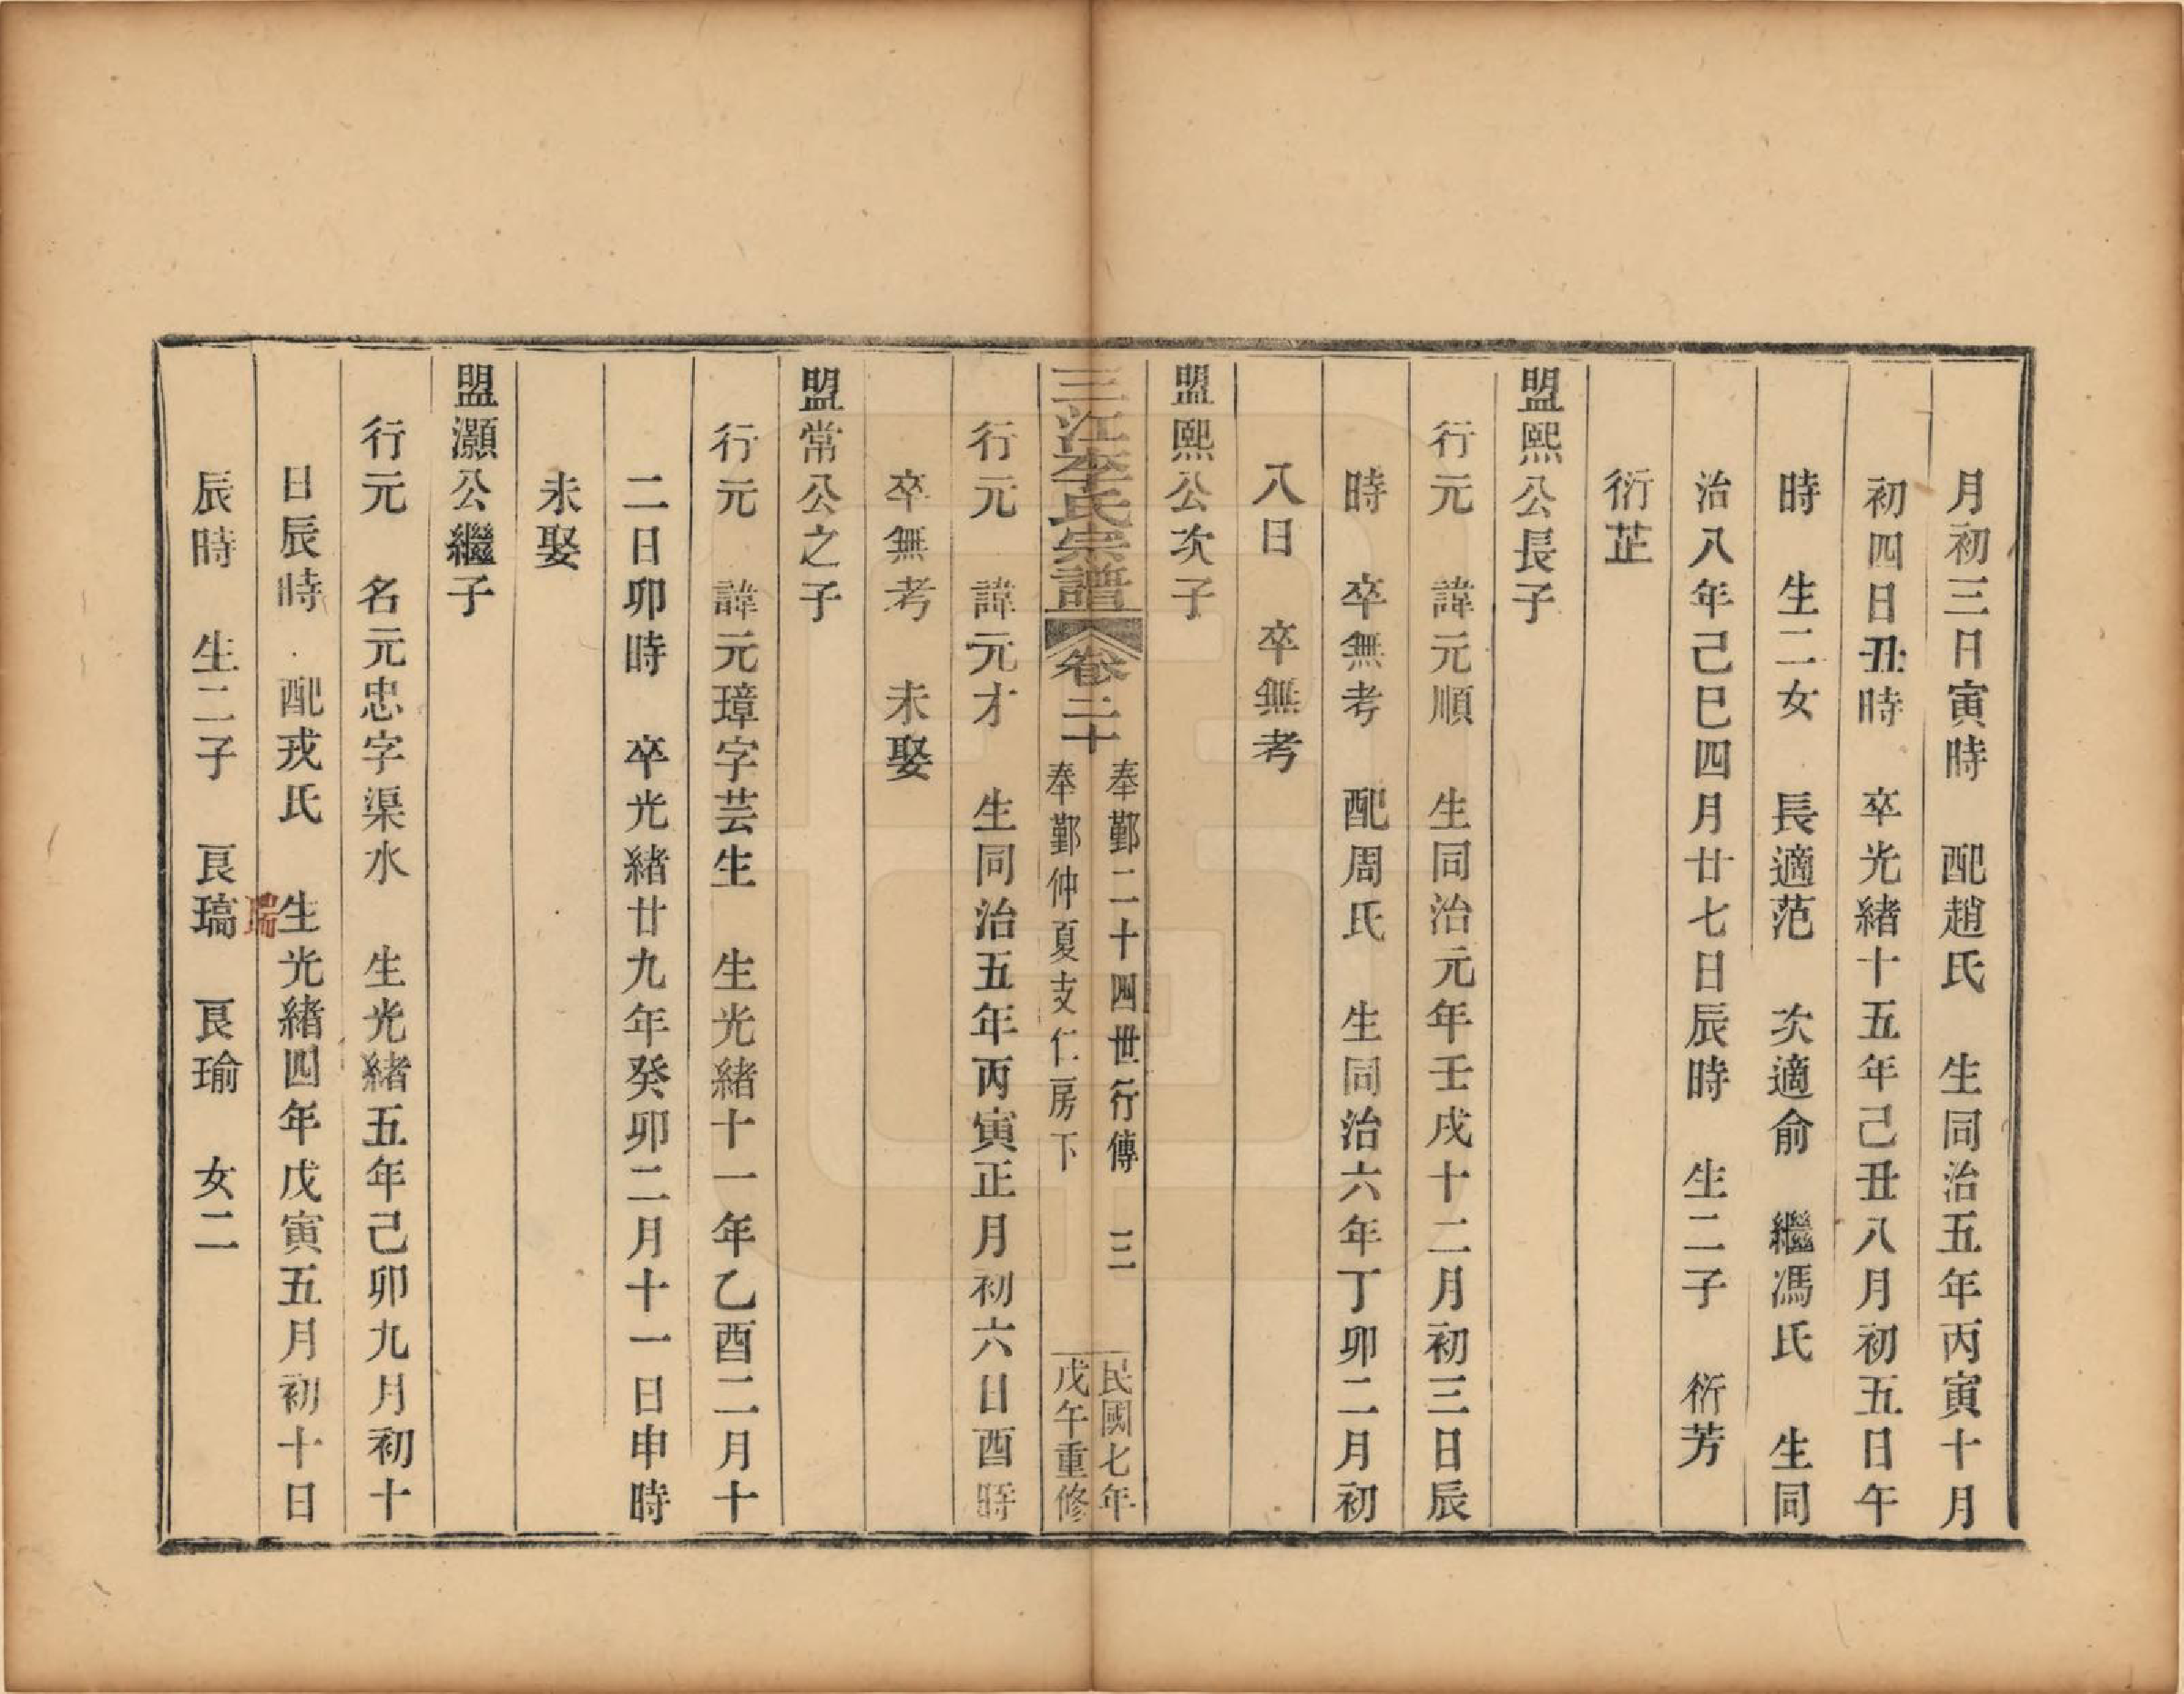 月初三日寅時　配趙氏　生同治五年丙寅十月
初四日丑時　卒光緒十五年己丑八月初五日午
時　生二女　長適范　次適俞　繼馮氏　生同
治八年己巳四月廿七日辰時　生二子　衍芳
衍芷
盟熙公長子
行元　諱元順　生同治元年壬戌十二月初三日辰
時　卒無考　配周氏　生同治六年丁卯二月初
八日　卒無考
盟熙公次子
三江李氏宗譜　卷二十
奉鄞二十四世行傳　三
奉鄞仲夏支仁房下
民國七年
戊午重修
行元　諱元才　生同治五年丙寅正月初六日酉時
卒無考　未娶
盟常公之子
行元　諱元璋字芸生　生光緒十一年乙酉二月十
二日卯時　卒光緒廿九年癸卯二月十一日申時
未娶
盟灝公繼子
行元　名元忠字渠水　生光緒五年己卯九月初十
日辰時　配戎氏　生光緒四年戊寅五月初十日
瑞
辰時　生二子　良瑀　良瑜　女二